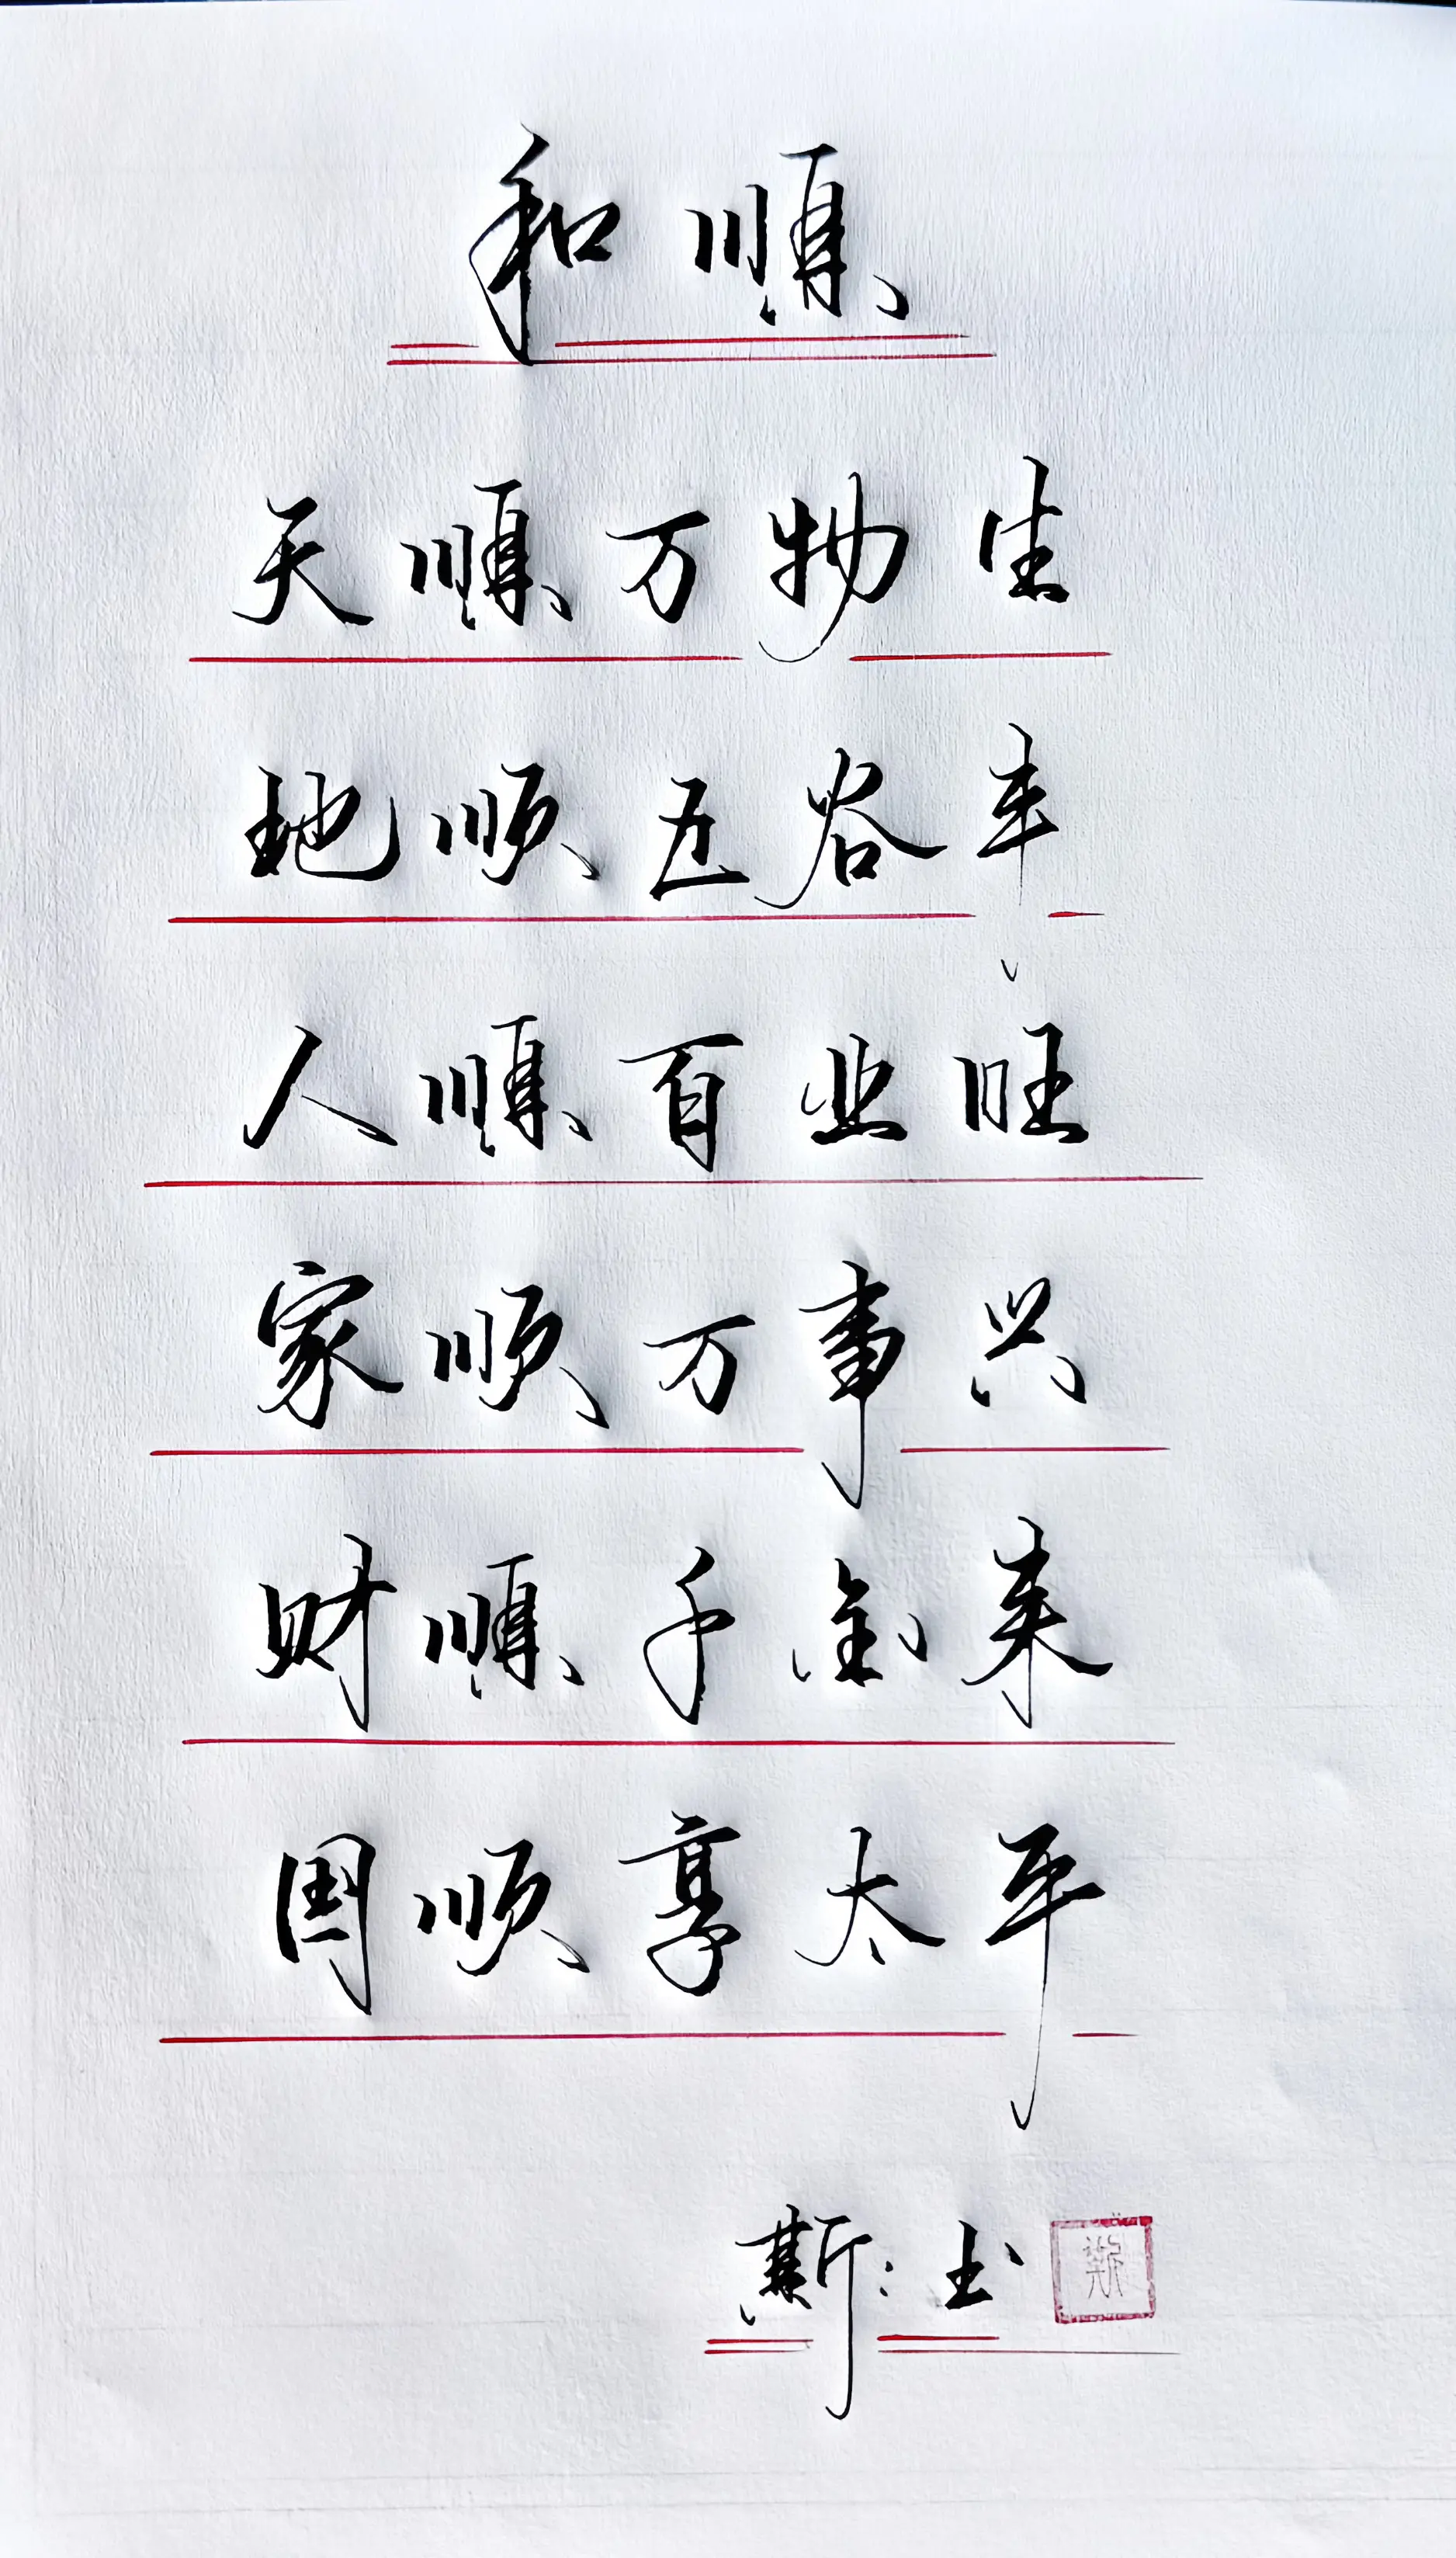 和順
天順万物生
地顺五谷丰
人順百业旺
家顺万事兴
财順千金来
国顺享太平
斯:玉
斯